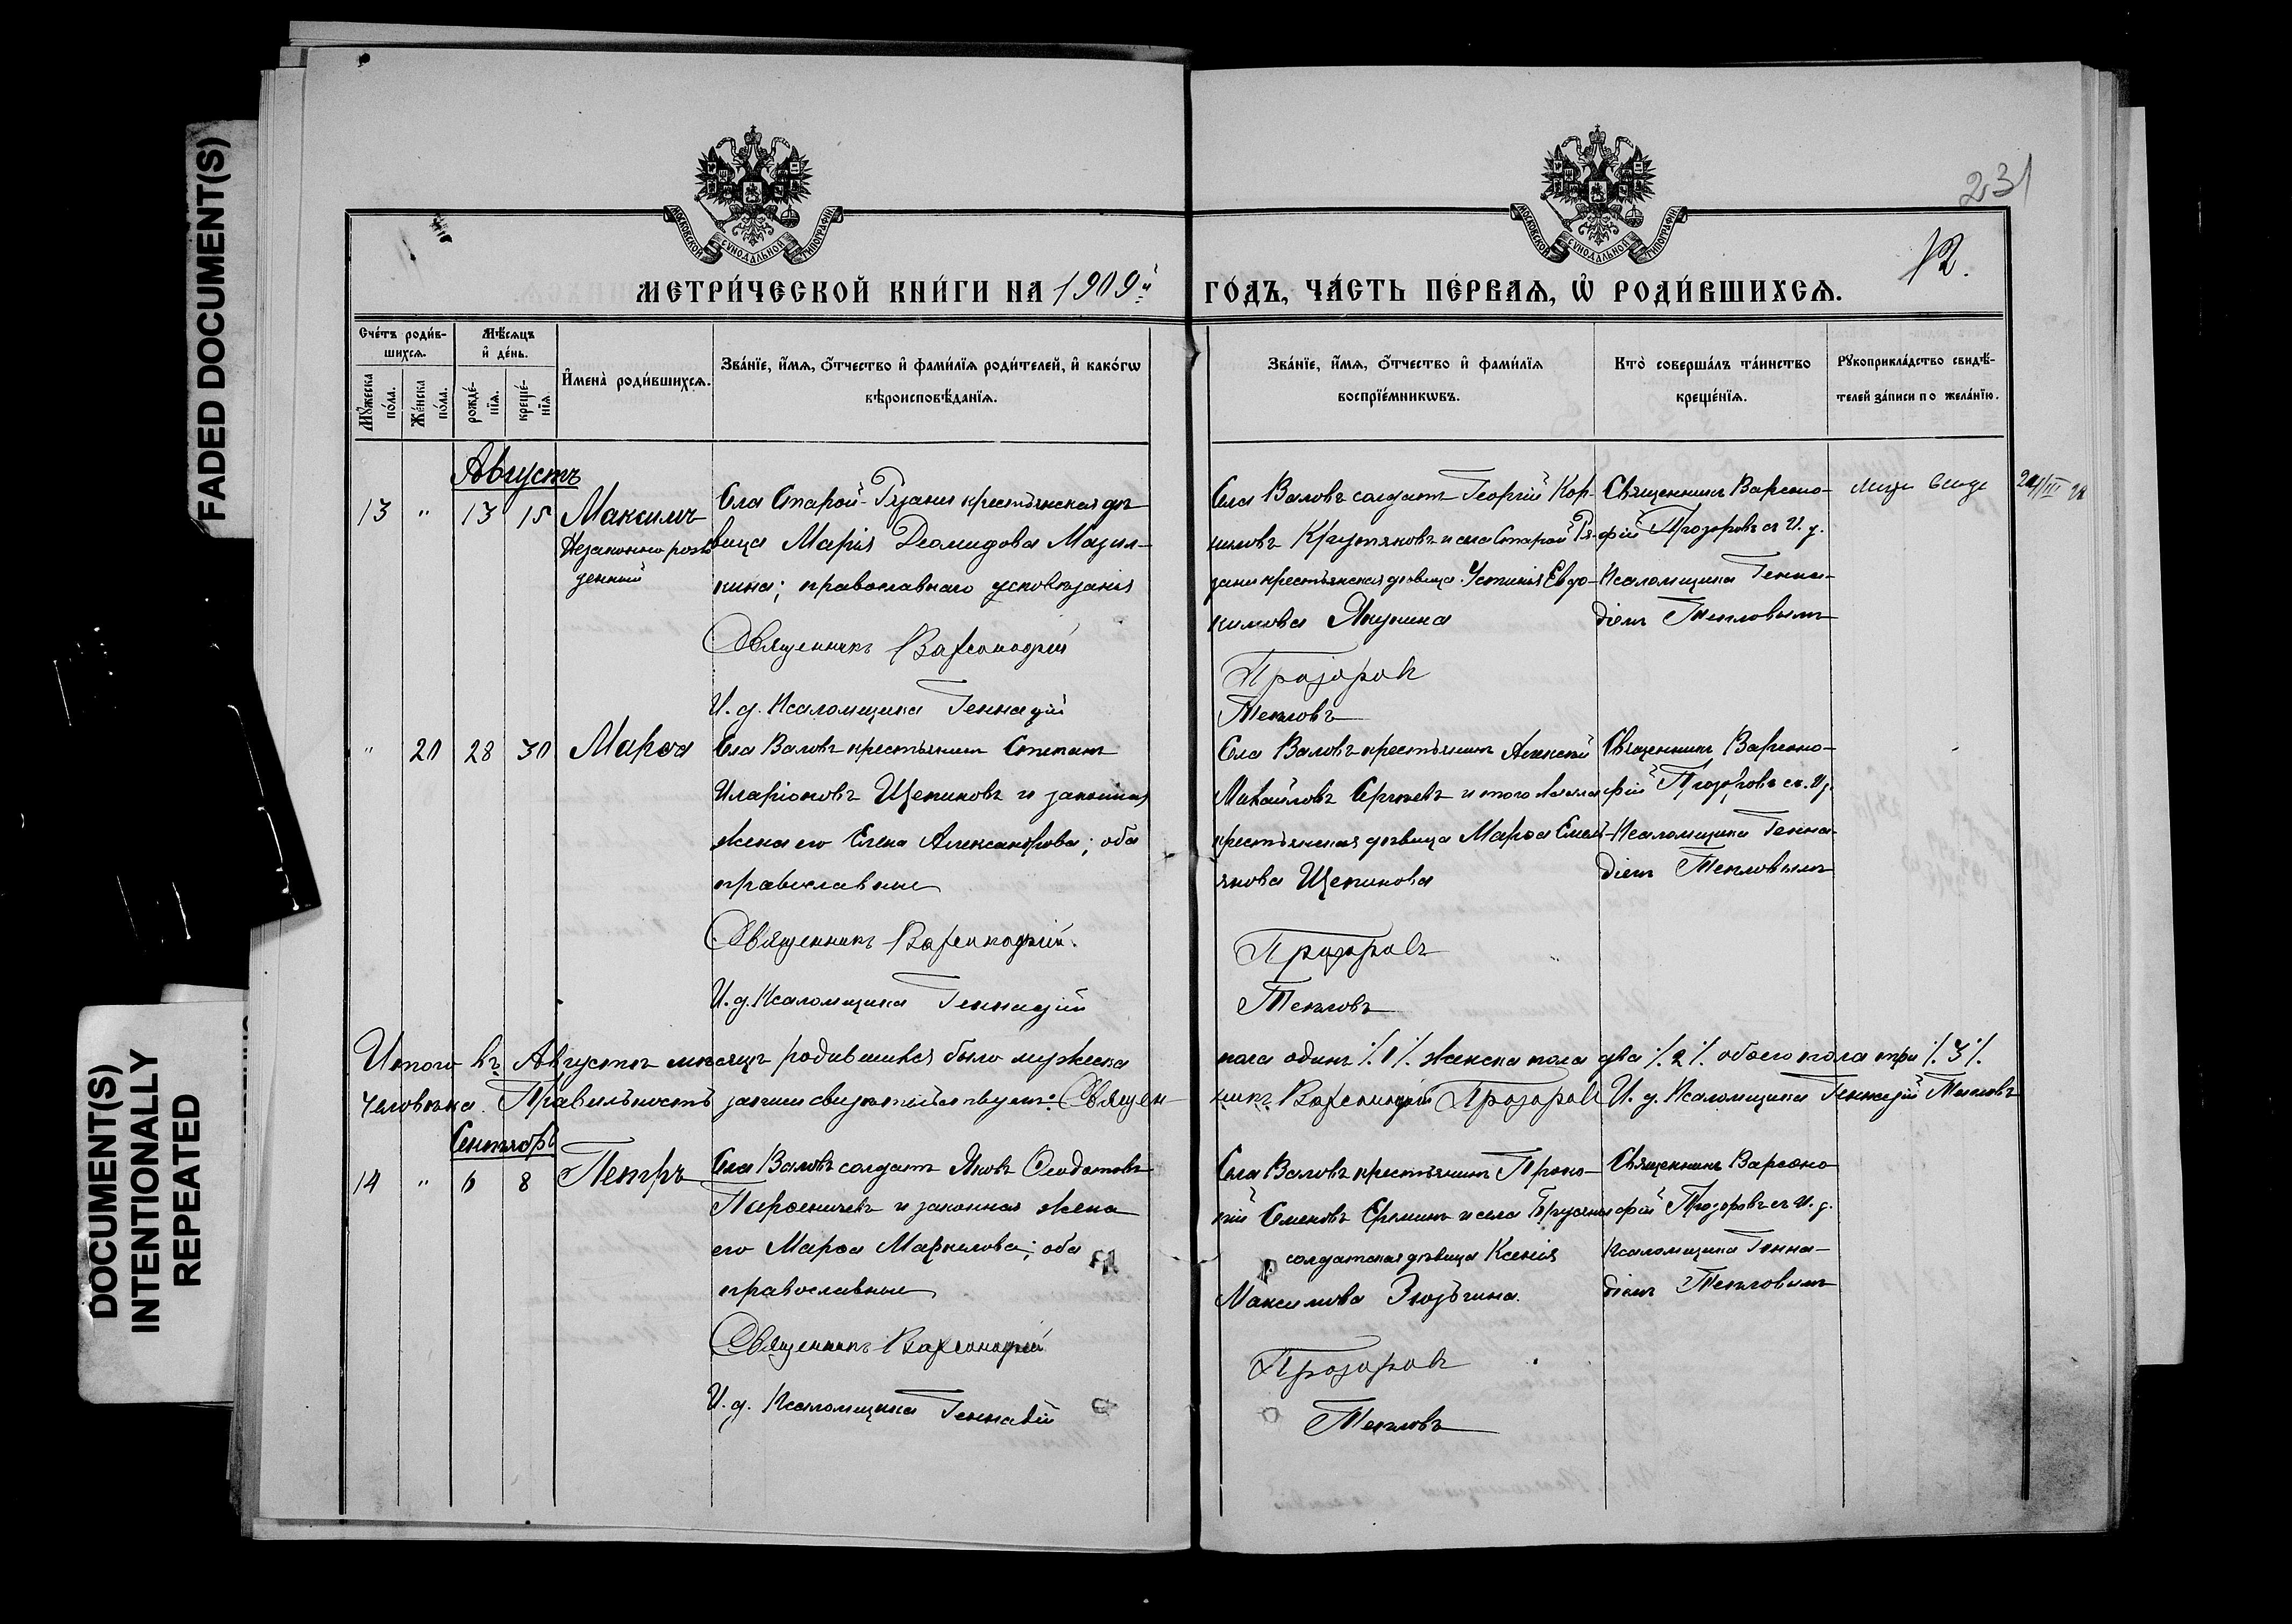 FADED DOCUMENT(S)
DOCUMENT(S)
INTENTIONALLY
REPEATED
231
12.
МОСКОВСКОЙ СѴНОДАЛЬНОЙ ТИПОГРАФІИ
МОСКОВСКОЙ СѴНОДАЛЬНОЙ ТИПОГРАФІИ
МЕТРИ́ЧЕСКОЙ КНИ́ГИ НА 1909й
ГО́ДЪ, ЧА́СТЬ ПЕ́РВАѦ, Ѡ҆ РОДИ́ВШИХСѦ.
Сче́тъ роди́в-
шихсѧ.
Мꙋ́жеска
по́ла.
Же́нска
по́ла.
Мѣ́сѧцъ
и҆ де́нь.
рожде́-
нїѧ.
креще́-
нїѧ.
И҆мена̀ роди́вшихсѧ.
Зва́нїе, и҆́мѧ, ѻ҆́тчество и҆ фами́лїѧ роди́телей, и҆ како́гѡ
вѣроисповѣ́данїѧ.
Зва́нїе, и҆́мѧ, ѻ҆́тчество и҆ фами́лїѧ
воспрїе́мникѡвъ.
Кто̀ соверша́лъ та́инство
креще́нїѧ.
Рꙋкоприкла́дство свидѣ́-
телей за́писи по жела́нїю.
Августъ
13 " 13 15 Максимъ
Незаконно рож
денный
Села Старой-Рузани крестьянская дѣ
вица Марія Деомидова Мазил-
кина; православнаго исповѣданія
Священникъ Варсонофій
И. д. Псаломщика Геннадій
Села Валовъ солдатъ Георгій Кор-
ниловъ Крутяковъ и села Старой Ря-
зани крестьянская дѣвица Устинія Евдо-
кимова Якушина
Прозоровъ
Тепловъ
Священникъ Варсоно-
фій Прозоровъ съ И. д.
Псаломщика Генна-
діемъ Тепловымъ
" 20 28 30 Марѳа
Села Валовъ крестьянинъ Степанъ
Иларіоновъ Щепиновъ и законная
жена его Елена Александрова; оба
православные
Священникъ Варсонофій.
И. д. Псаломщика Геннадій
Села Валовъ крестьянинъ Алексѣй
Михайловъ Сергѣевъ и того села
крестьянская дѣвица Марѳа Емель-
янова Щепинова
Прозоровъ
Тепловъ
Священникъ Варсоно-
фій Прозоровъ съ И. д.
Псаломщика Генна-
діемъ Тепловымъ
Итого въ Августѣ мѣсяцѣ родившихся было мужеска пола одинъ ٪1٪ женска пола два ٪2٪ обоего пола три ٪3٪
человѣка. Правильность записи свидѣтельствуемъ: Священ-никъ Варсонофій Прозоровъ И. д. Псаломщика Геннадій Тепловъ
Сентябрь
14 " 6 8 Петръ
Села Валовъ солдатъ Яковъ Ѳеодотовъ
Парѳеничевъ и законная жена
его Марѳа Маркелова; оба
православные
Священникъ Варсонофій
И. д. Псаломщика Геннадій
Села Валовъ крестьянинъ Проко-
пій Семеновъ Ереминъ и села
солдатская дѣвица Ксенія
Максимова Зюзьгина.
Прозоровъ
Тепловъ
Священникъ Варсоно
фій Прозоровъ съ И. д.
Псаломщика Генна-
діемъ Тепловымъ